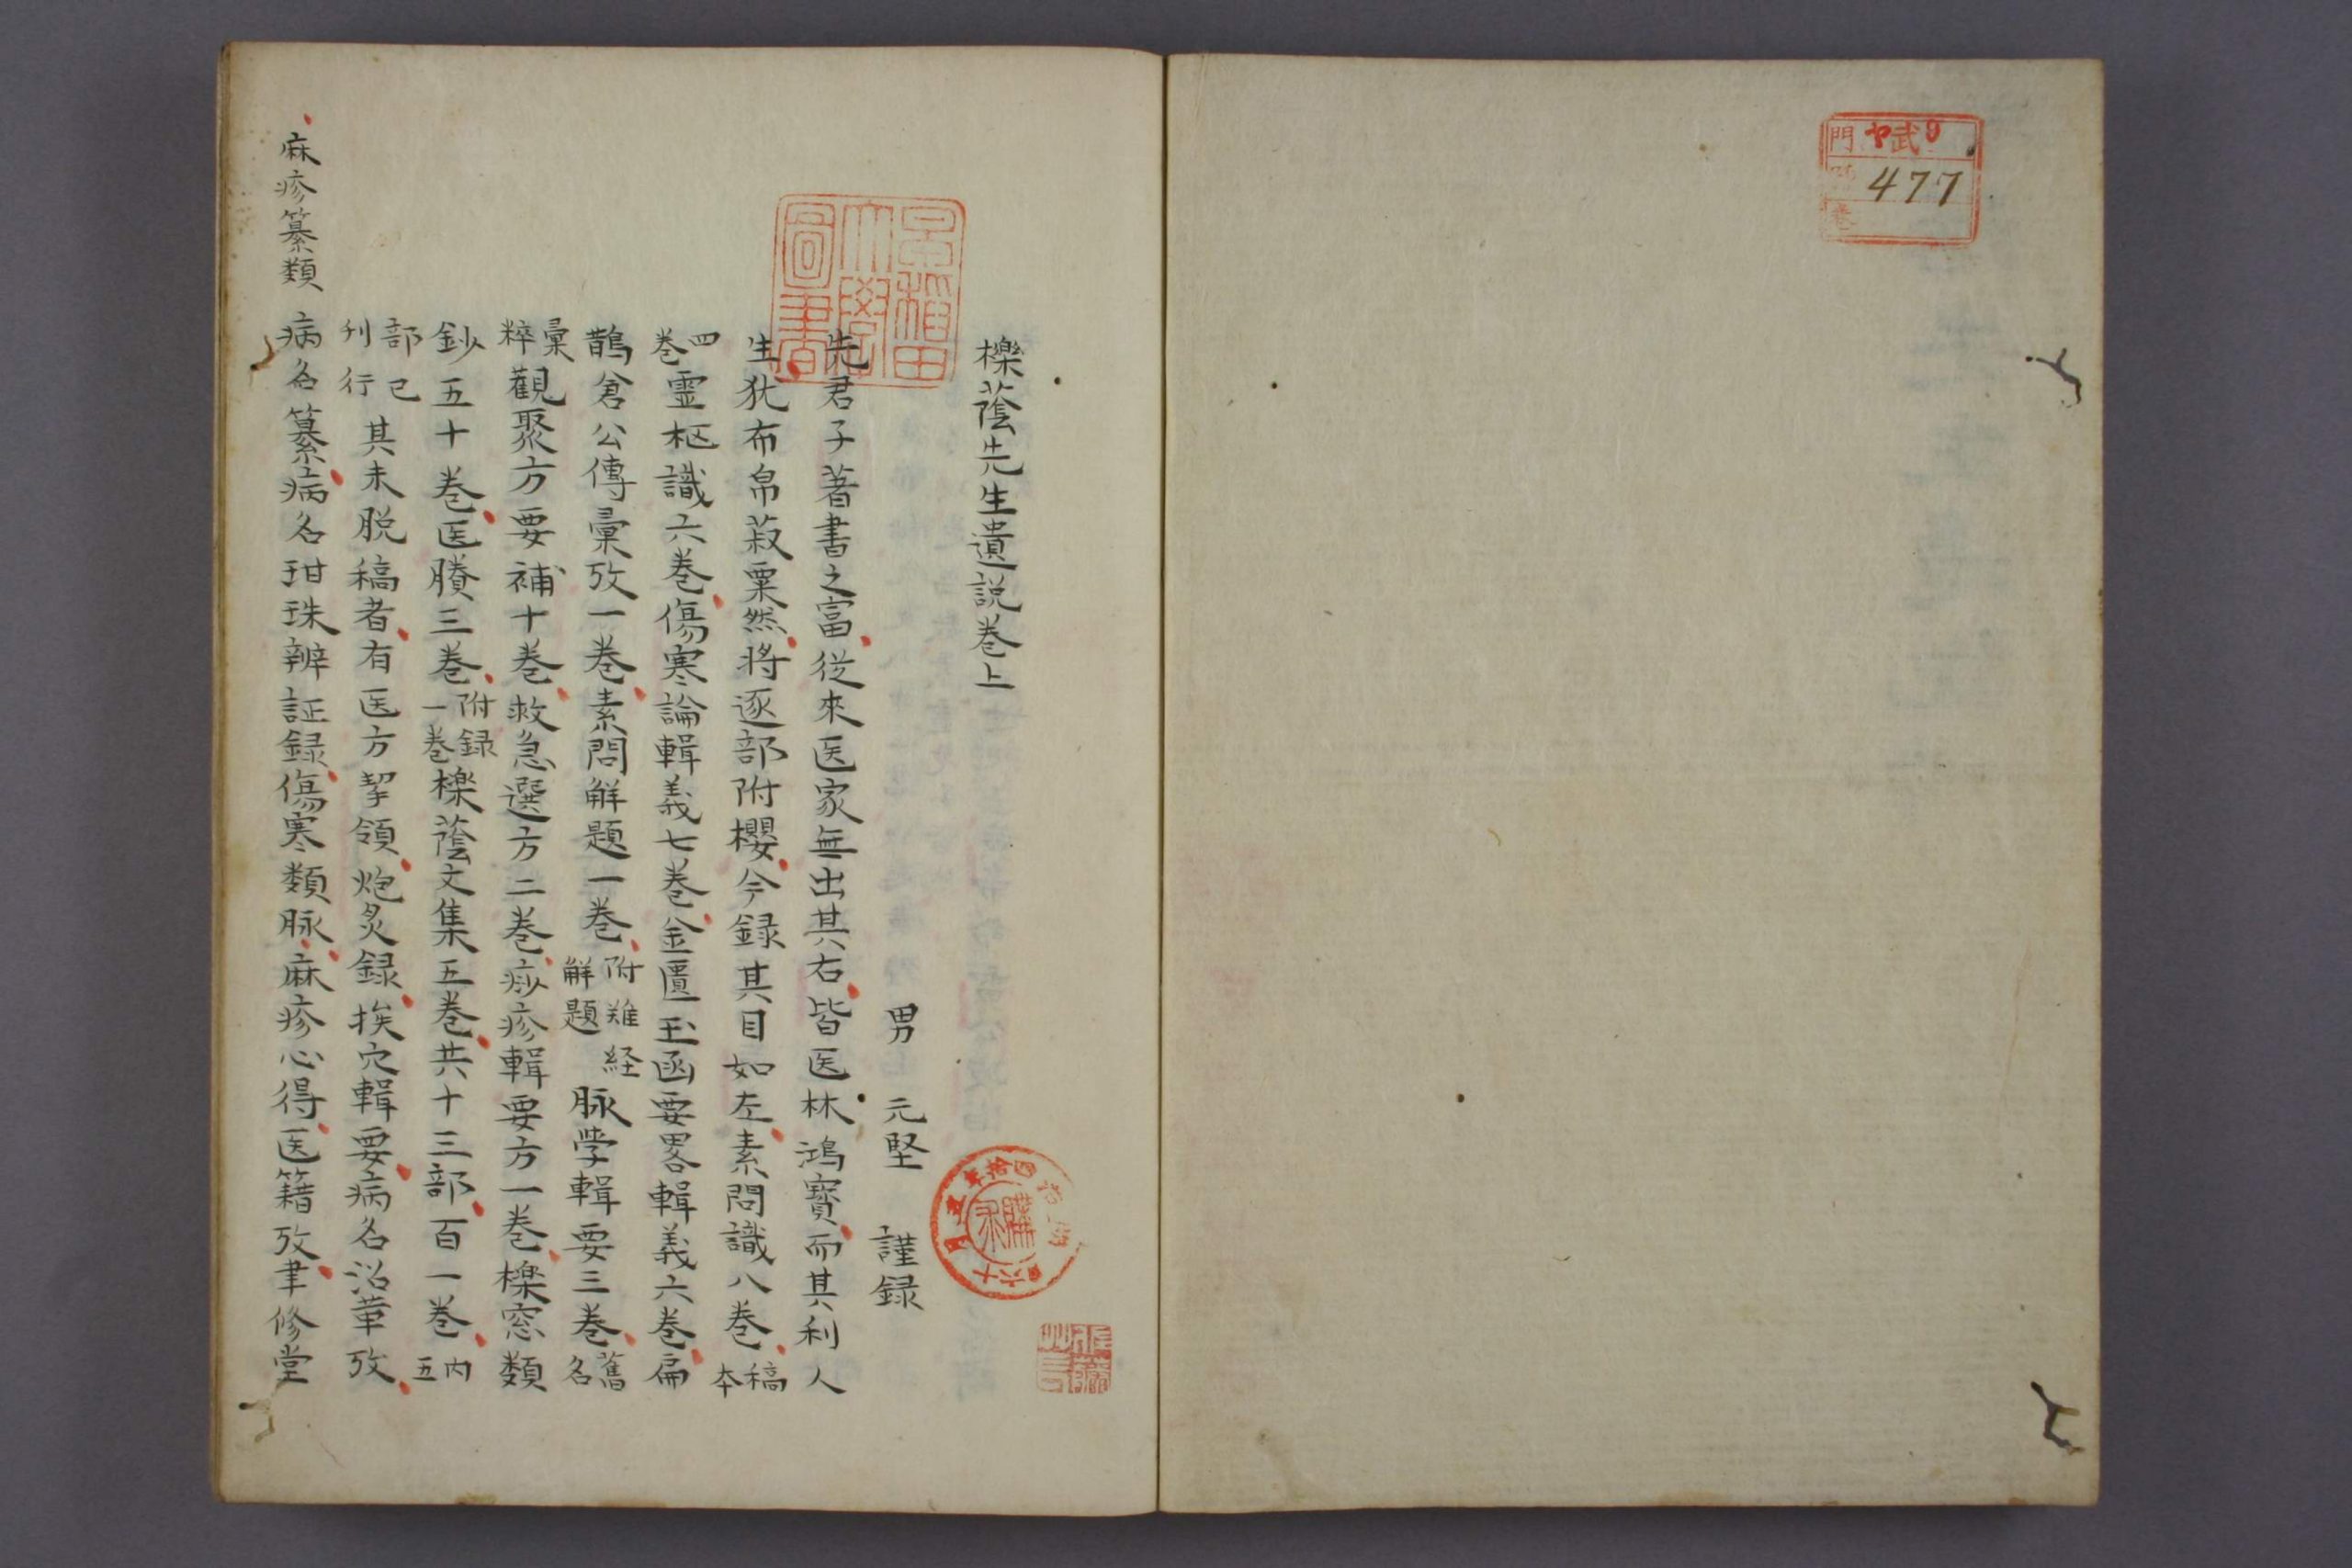 門
477
櫟蔭先生遺説巻上
男 元堅 謹録
先君子著書之富従來医家無出其右皆医林鴻寶而其利人
生犹布帛菽粟然将逐部附櫻今録其目如左素問識八巻稿本
四巻靈枢識六巻傷寒論輯義七巻金匱玉函要畧輯義六巻扁
鵲倉公傳彙攷一巻素問解題一巻附難経解題脉学輯要三巻舊名
彙粹觀聚方要補十巻救急選方二巻痧疹輯要方一巻櫟窓類
鈔五十巻医賸三巻附録一巻櫟蔭文集五巻共十三部百一巻内五
部已刋行其未脱稿者有医方挈領炮炙録挨穴輯要病名沿革攷
病名纂病名玵珠辨証録傷寒類脉麻疹心得医籍攷聿修堂
麻疹纂類
早稻田大學圖書